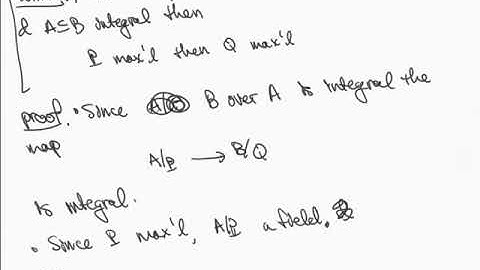 & A⊆B integral then
P max'l then Q max'l
proof. • Since B over A is integral the
map
A/P → B/Q
is integral.
• Since P max'l, A/P a field.